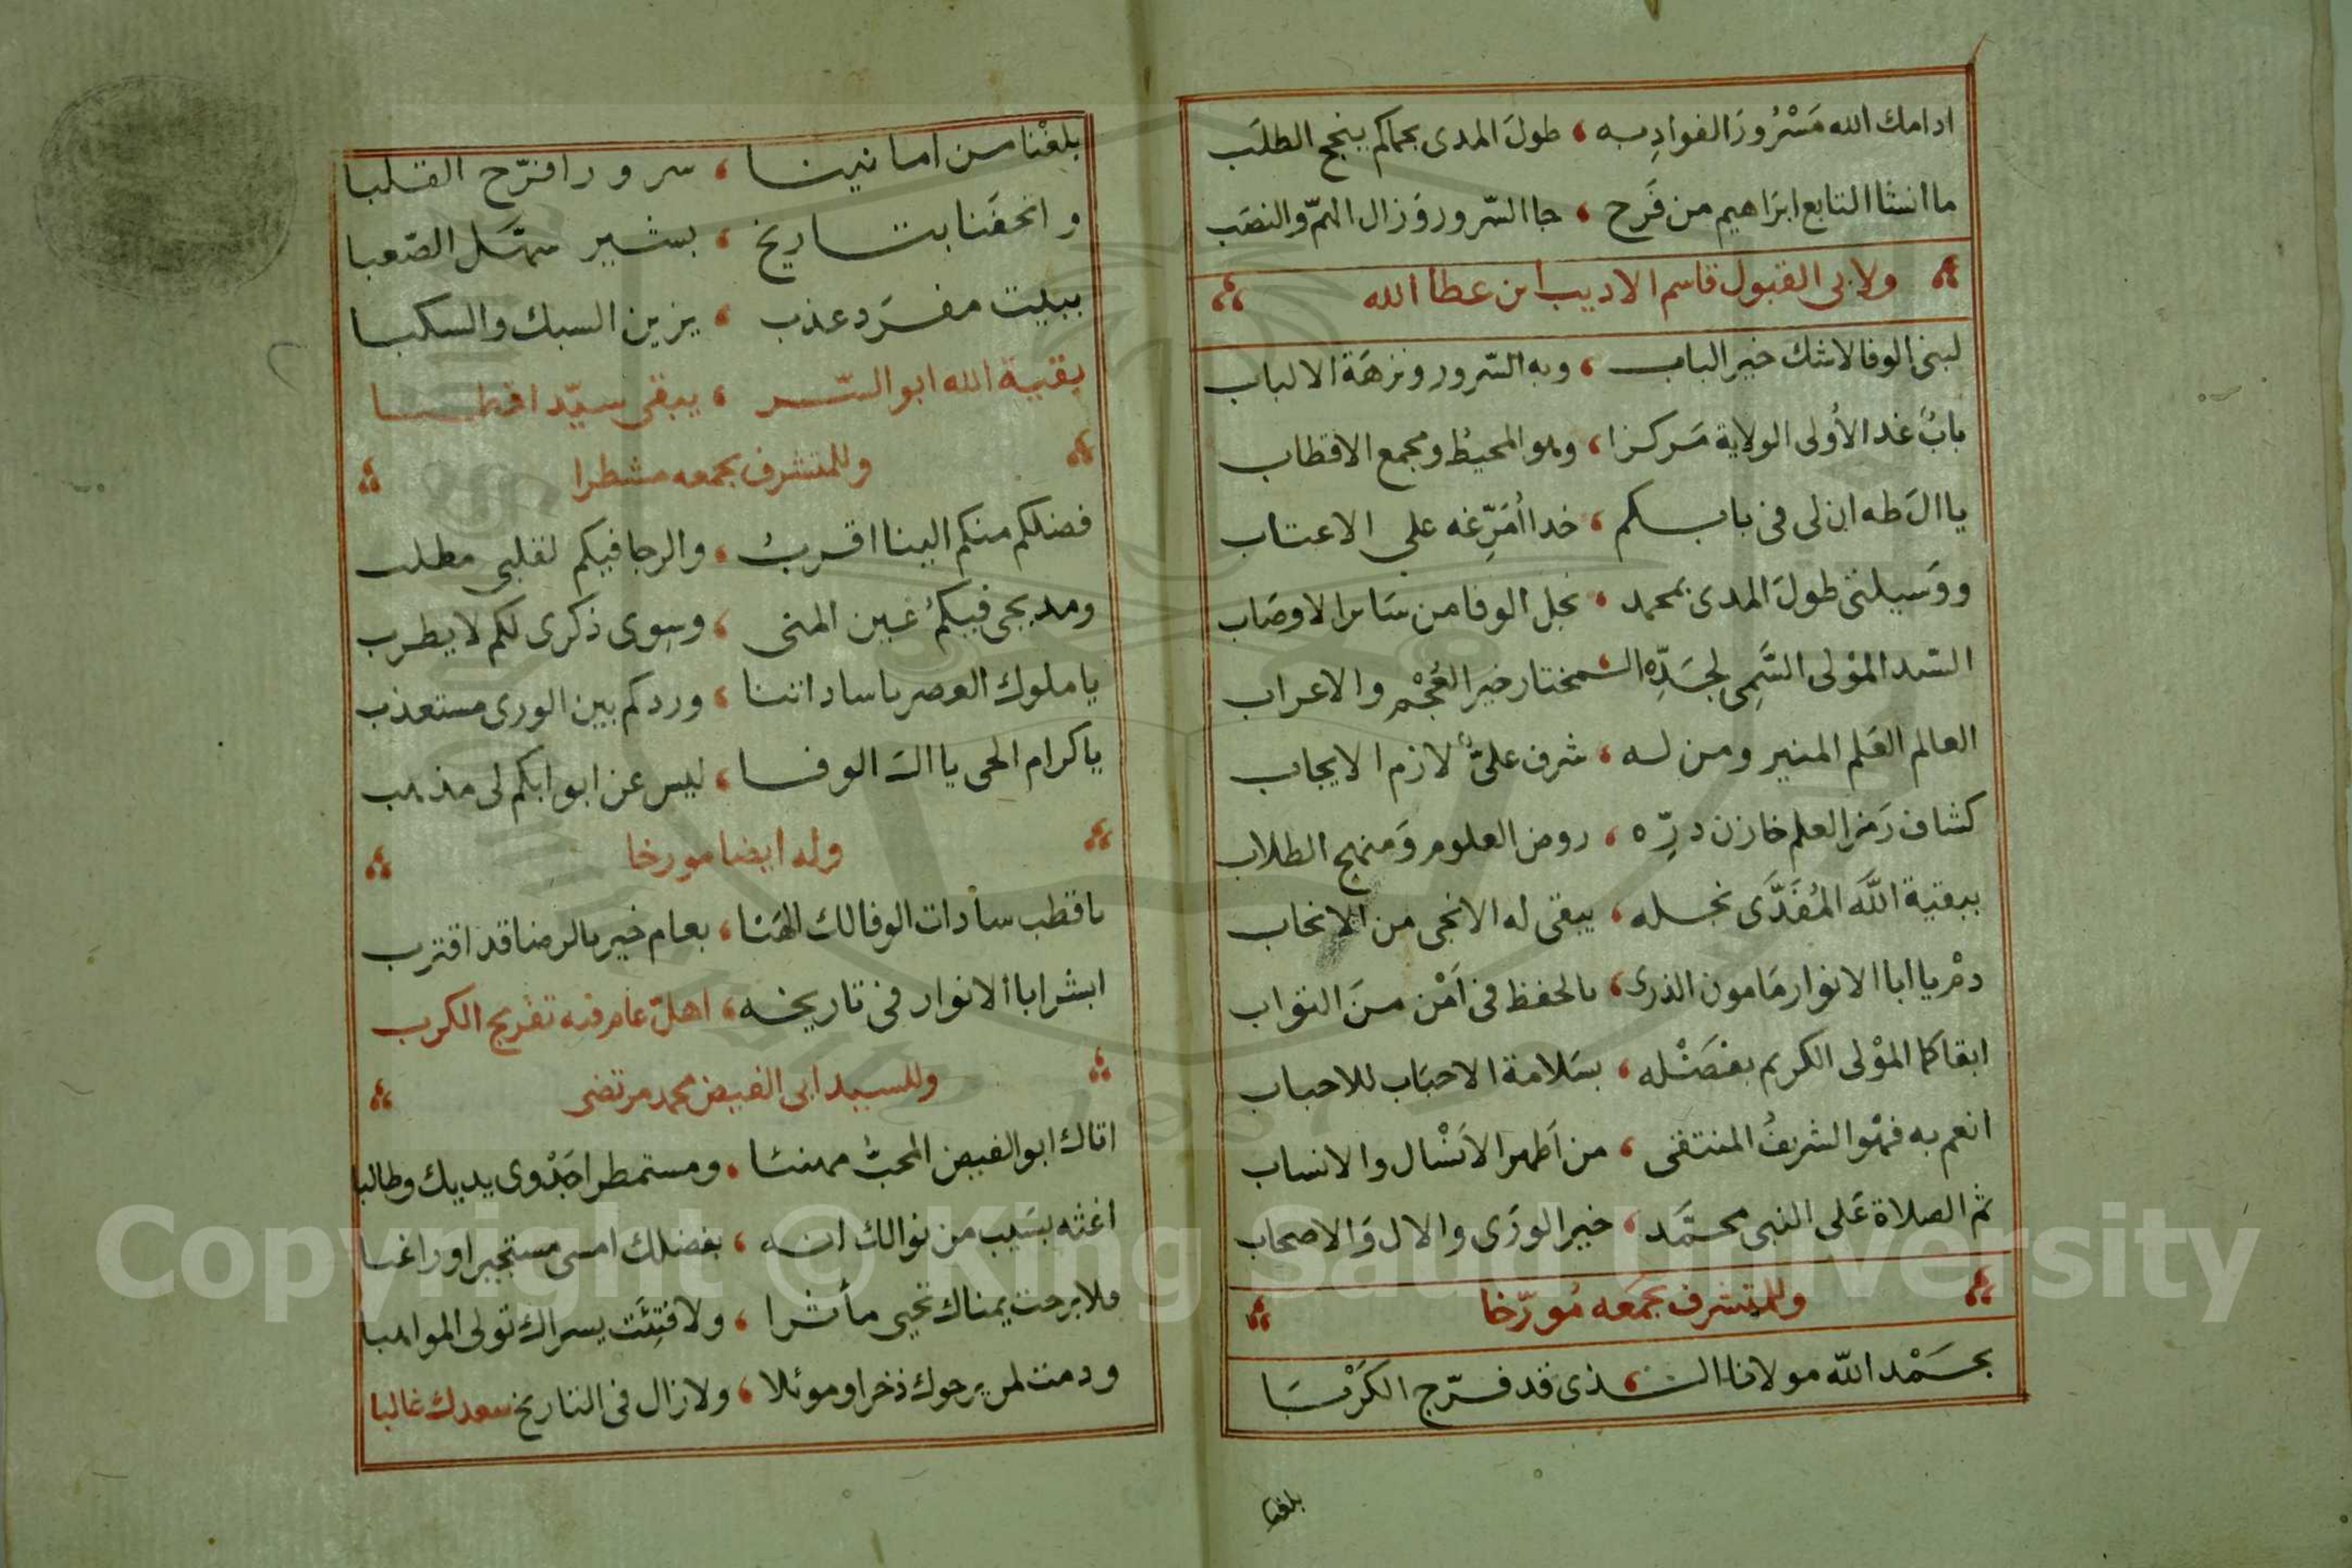 ادامك الله مَسْرُورَ الفوادِ به ، طولَ المدى بحماكم ينجح الطلَب
ما انشا التابع ابرَاهيم من فَرح ، جا السّرور وَزال الهمّ والنصَب
ولابى القبول قاسم الاديب ابن عطا الله
لبنى الوفا لاشك خير الباب ، وبه السّرور ونزهَة الالباب
بابٌ غدا لأولى الولاية مَركزا ، وهو المحيطُ ومجمع الاقطاب
يا الَ طه ان لى فى بابكم ، خدا أمَرّغه على الاعتاب
ووَسيلتى طولَ المدى بمحمد ، نجل الوفا من سَائر الاوصَاب
السّيد الموْلى السَّمِى لجَدِّه المختار خير العُجْم والاعراب
العالم العَلم المنير ومن له ، شرف علىٌّ لازم الايجاب
كشاف رَمز العلم خازن درِّه ، روض العلوم وَمنهج الطلاب
ببقية اللَّه المُفَدَّى نجله ، يبقى له الانجى من الانجاب
دمْ يا ابا الانوار مَامون الذرى ، بالحفظ فى اَمْن منَ النوّاب
ابقاكما الموْلى الكريم بفضْله ، بسَلامة الاحبَاب للاحباب
انعم به فهْو الشريفُ المنتقى ، من اَطهر الاَنْسال والانساب
ثم الصلاة عَلى النبى محمَّد ، خير الورَى والال وَالاصحاب
وللمتشرف بجمَعه مُورّخا
بحَمْد اللّه مولانا الذى قد فرّج الكَرْبَا
بلغنا
بلغْنا من امانينا ، سرورا فرّح القلبا
واتحفَنا بتاريخ ، بشير سهَّل الصّعبا
ببيت مفرَد عذب ، يزين السبك والسكبا
بقية الله ابو السّر ، يبقى سيّدا قطبا
وللمتشرف بجمعه مشطرا
فضلكم منكم الينا اقربُ ، والرجا فيكم لقلبى مطلب
ومديحى فيكمُ عين المنى ، وسوى ذكرى لكم لا يطرب
يا ملوك العصر يا ساداتنا ، وردكم بين الورى مستعذب
يا كرام الحى يا الَ الوفا ، ليس عن ابوابكم لى مذهب
وله ايضا مورخا
يا قطب سادات الوفا لك الهَنا ، بعام خير بالرضا قد اقترب
ابشر ابا الانوار فى تاريخه ، اهلّ عام فيه تفريج الكرب
وللسيد ابى الفيض محمد مرتضى
اتاك ابو الفيض المحبُّ مهنئا ، ومستمطرا جَدْوى يديك وطالبا
اغثه بسَيب من نوالك انه ، بفضلك امسى مستجيرا وراغبا
فلا برحت يمناك تحيى مأثرا ، ولا فتِئَت يسراك تولى المواهبا
ودمت لمن يرجوك ذخرا وموئلا ، ولا زال فى التاريخ سعدك غالبا
Copyright © King Saud University